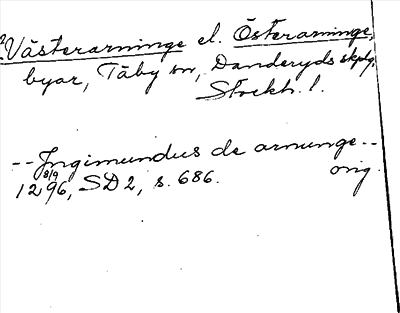 Västerarninge el. Österarninge,
byar, Täby sn, Danderyds skplg,
Stockh. l.
-- Ingimundus de arnunge --
1296 8/9, SD 2, s. 686. orig.